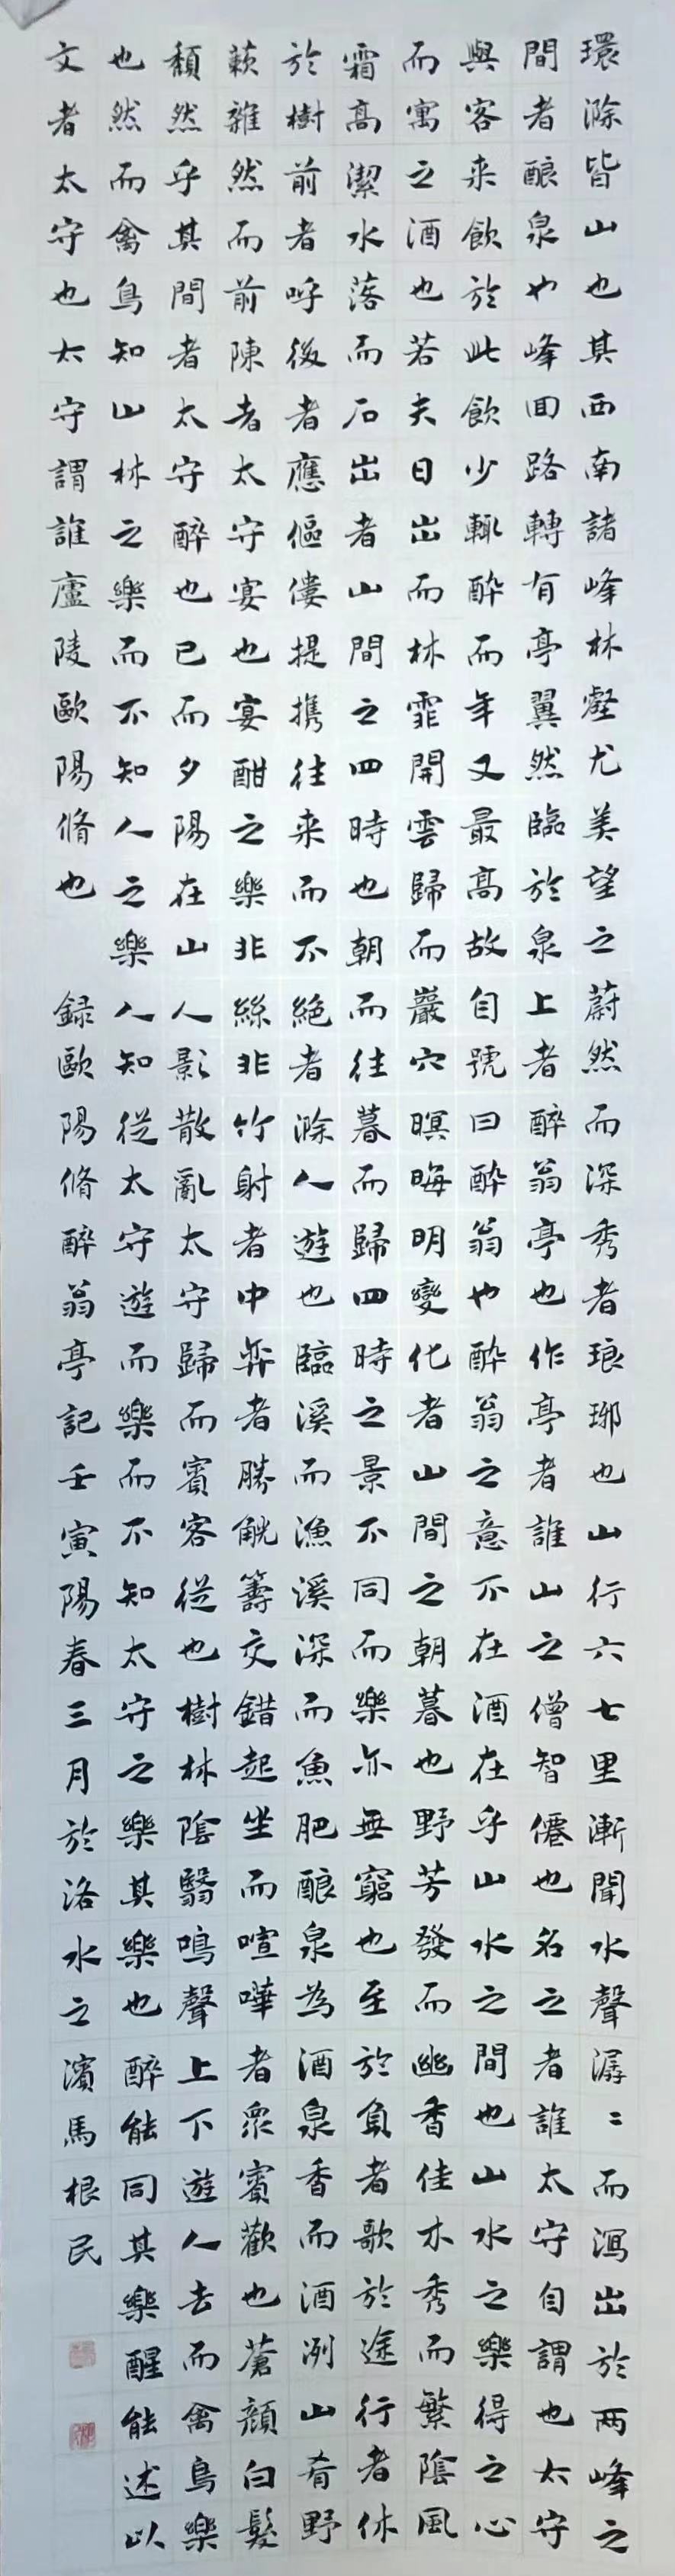 環滁皆山也其西南諸峰林壑尤美望之蔚然而深秀者琅琊也山行六七里漸聞水聲潺〻而瀉出於兩峰之
間者釀泉也峰回路轉有亭翼然臨於泉上者醉翁亭也作亭者誰山之僧智僊也名之者誰太守自謂也太守
與客来飲於此飲少輒醉而年又最高故自號曰醉翁也醉翁之意不在酒在乎山水之間也山水之樂得之心
而寓之酒也若夫日出而林霏開雲歸而巖穴暝晦明變化者山間之朝暮也野芳發而幽香佳木秀而繁陰風
霜高潔水落而石出者山間之四時也朝而往暮而歸四時之景不同而樂亦無窮也至於負者歌於途行者休
於樹前者呼後者應傴僂提攜往来而不絕者滁人遊也臨溪而漁溪深而魚肥釀泉為酒泉香而酒洌山肴野
蔌雜然而前陳者太守宴也宴酣之樂非絲非竹射者中弈者勝觥籌交錯起坐而喧嘩者眾賓歡也蒼顏白髮
頹然乎其間者太守醉也已而夕陽在山人影散亂太守歸而賓客從也樹林陰翳鳴聲上下遊人去而禽鳥樂
也然而禽鳥知山林之樂而不知人之樂人知從太守遊而樂而不知太守之樂其樂也醉能同其樂醒能述以
文者太守也太守謂誰廬陵歐陽脩也 録歐陽脩醉翁亭記壬寅陽春三月於洛水之濱馬根民